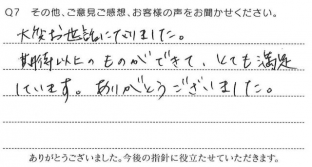 Q7 その他、ご意見ご感想、お客様の声をお聞かせください。
大変お世話になりました。
期待以上のものができて、とても満足
しています。ありがとうございました。
ありがとうございました。今後の指針に役立たせていただきます。